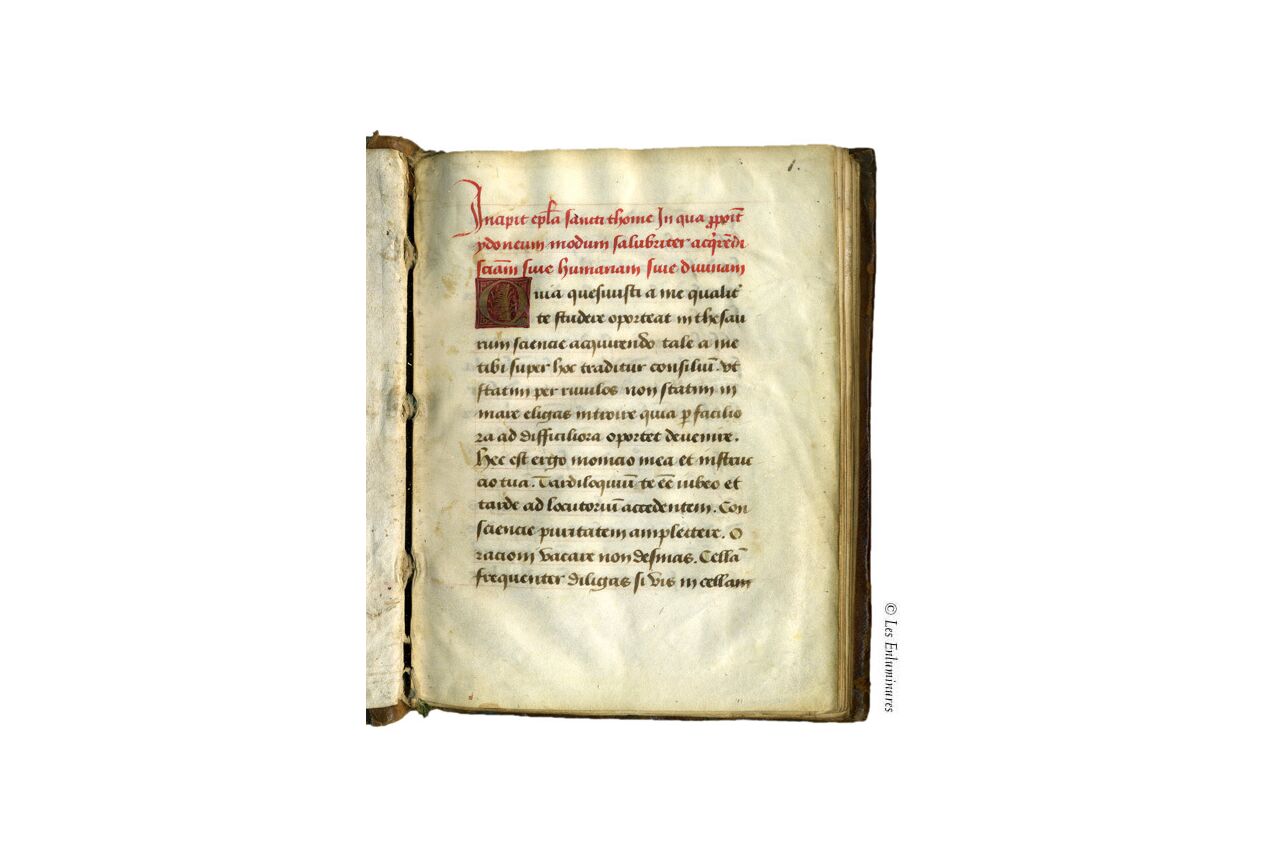 1.
Incipit ep̄la sancti thome In qua p̱poīt
ydoneum modum salubriter acq̇rēdi
sciām siue humanam siue diuinam
Quia quesiuisti a me qualit̄
te studere oporteat in thesau
rum sciencie acquirendo tale a me
tibi super hoc traditur consiliū. vt
statim per riuulos non statim in
mare eligas introire quia p̱ facilio
ra ad difficiliora oportet deuenire.
Hec est ergo monicio mea et instruc
cio tua. Tardiloquiū te eē iubeo et
tarde ad locutoriū accedentem. Con
sciencie puritatem amplectere. O
racioni vacare non desinas. Cellā
frequenter diligas si vis in cellam
© Les Enluminures